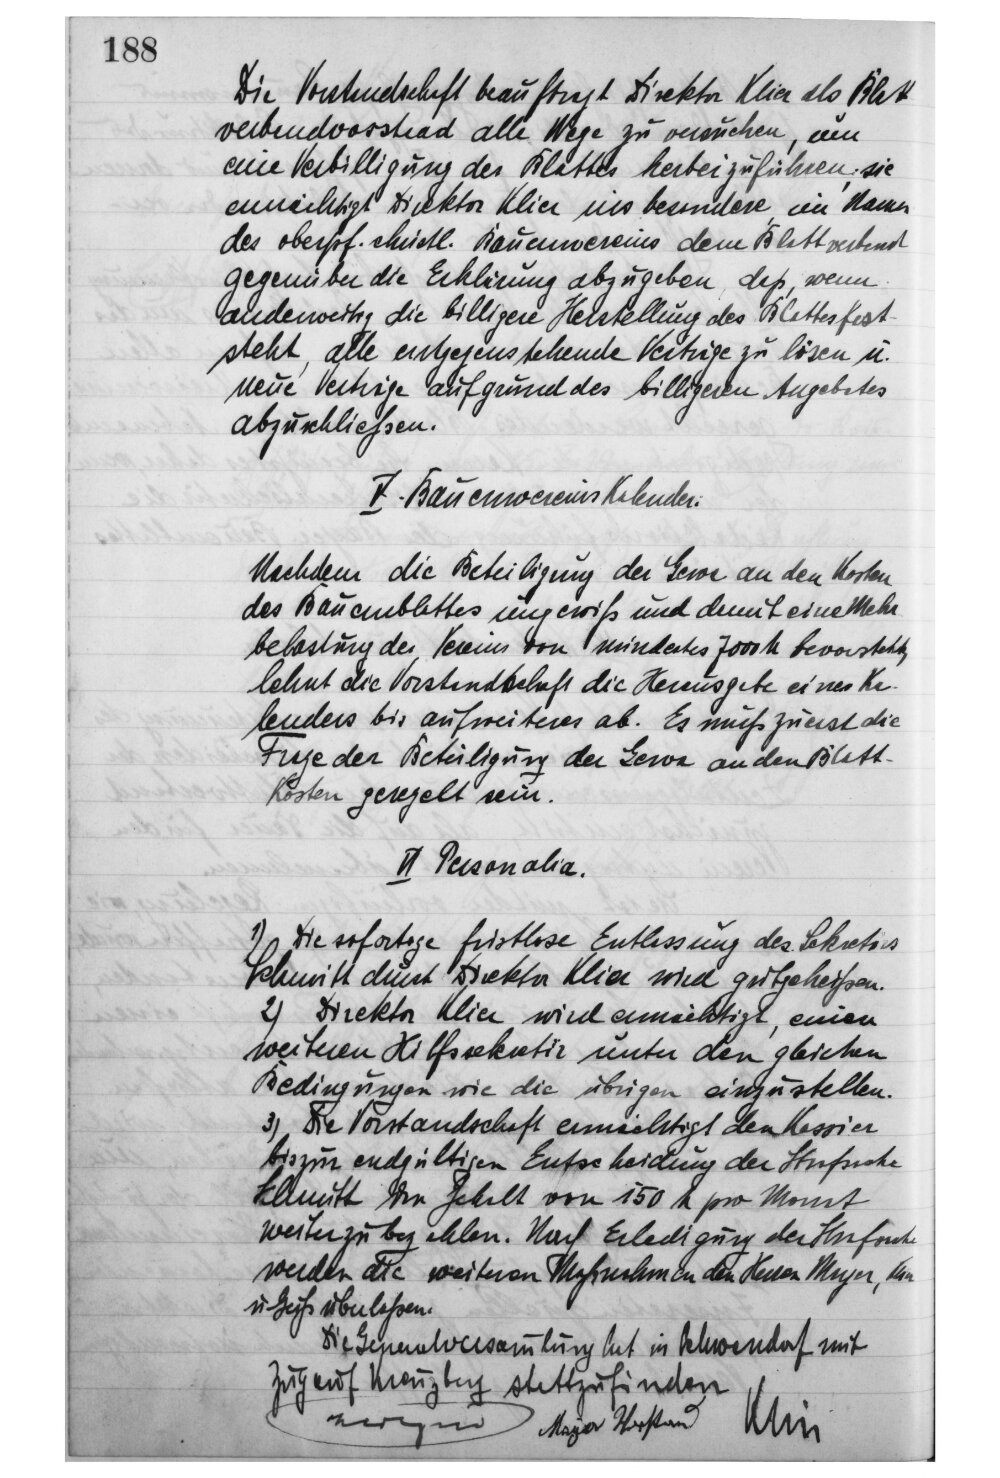 188
Die Vorstandschaft beauftragt Direktor Klier als Blatt
verbandvorstand alle Wege zu versuchen, um
eine Verbilligung des Blattes herbeizuführen; sie
ermächtigt Direktor Klier insbesondere, im Namen
des oberpf. christl. Bauernvereins dem Blattverband
gegenüber die Erklärung abzugeben, daß, wenn
anderweitig die billigere Herstellung des Blattes fest-
steht, alle entgegenstehende Verträge zu lösen u.
neue Verträge aufgrund des billigeren Angebotes
abzuschließen.
V. Bauernvereins Kalender.
Nachdem die Beteiligung der Gewa an den Kosten
des Bauernblattes ungewiß und damit eine Mehr
belastung des Vereins von mindestes 7000 M bevorsteht,
lehnt die Vorstandschaft die Herausgabe eines Ka-
lenders bis auf weiteres ab. Es muß zuerst die
Frage der Beteiligung der Gewa an den Blatt-
Kosten geregelt sein.
VI Personalia.
1) Die sofortige fristlose Entlassung des Sekretärs
Schmitt durch Direktor Klier wird gutgeheißen.
2) Direktor Klier wird ermächtigt, einen
weiteren Hilfssekretär unter den gleichen
Bedingungen wie die übrigen einzustellen.
3) Die Vorstandschaft ermächtigt den Kassier
bis zur endgültigen Entscheidung der Strafsache
Schmitt den Gehalt von 150 M pro Monat
weiterzubezahlen. Nach Erledigung der Strafsache
werden die weiteren Maßnahmen den Herren Mayer,
u. überlassen.
Die Generalversamlung hat in Schwandorf mit
Zug auf Kreuzberg stattzufinden
Mayer Vorstand Klier